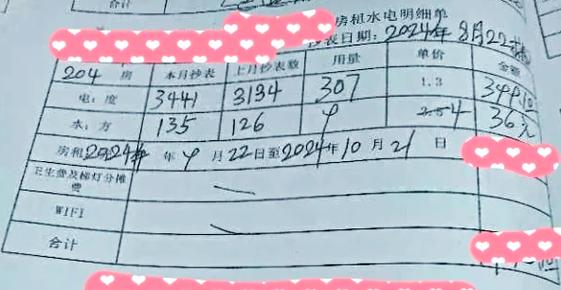 合计
房租水电明细单
抄表日期：2024年8月22
204房 本月抄表 上月抄表数 用量 单价 金额
电：度 3441 3134 307 1.3 399.10
水：方 135 126 9 4 36元
房租 2024年 年9月22日至2024年10月21日
卫生费及梯灯分摊费
WIFI
合计